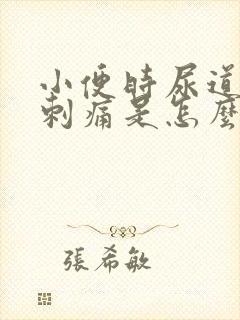 小便時尿道
刺痛是怎麼
張希敏